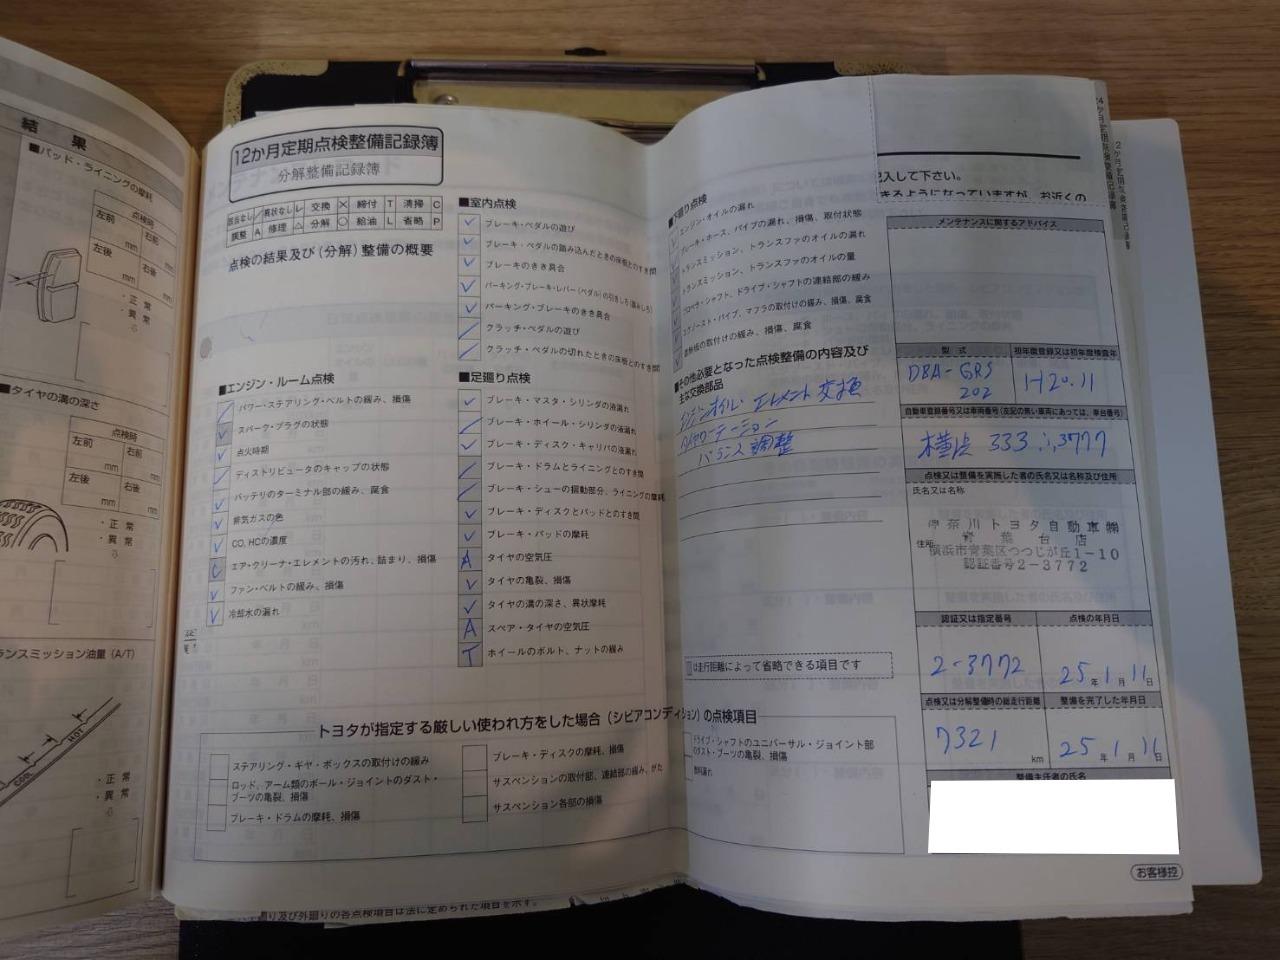 結 果
■パッド・ライニングの摩耗
左前
点検時
右前
mm
mm
左後
右後
mm
mm
・正 常
・異 常
■タイヤの溝の深さ
左前
点検時
右前
mm
mm
左後
右後
mm
mm
・正 常
・異 常
ランスミッション油量（A/T）
HOT
COOL
・正 常
・異 常
12か月定期点検整備記録簿
分解整備記録簿
該当なし ／ 異状なし レ 交換 × 締付 T 清掃 C
調整 A 修理 △ 分解 ○ 給油 L 省略 P
点検の結果及び（分解）整備の概要
■エンジン・ルーム点検
パワー・ステアリング・ベルトの緩み、損傷
スパーク・プラグの状態
点火時期
ディストリビュータのキャップの状態
バッテリのターミナル部の緩み、腐食
排気ガスの色
CO, HCの濃度
エア・クリーナ・エレメントの汚れ、詰まり、損傷
ファン・ベルトの緩み、損傷
冷却水の漏れ
■室内点検
ブレーキ・ペダルの遊び
ブレーキ・ペダルの踏み込んだときの床板とのすき間
ブレーキのきき具合
パーキング・ブレーキ・レバー（ペダル）の引きしろ（踏みしろ）
パーキング・ブレーキのきき具合
クラッチ・ペダルの遊び
クラッチ・ペダルの切れたときの床板とのすき間
■足廻り点検
ブレーキ・マスタ・シリンダの液漏れ
ブレーキ・ホイール・シリンダの液漏れ
ブレーキ・ディスク・キャリパの液漏れ
ブレーキ・ドラムとライニングとのすき間
ブレーキ・シューの摺動部分、ライニングの摩耗
ブレーキ・ディスクとパッドとのすき間
ブレーキ・パッドの摩耗
A タイヤの空気圧
タイヤの亀裂、損傷
タイヤの溝の深さ、異状摩耗
A スペア・タイヤの空気圧
T ホイールのボルト、ナットの緩み
廻り点検
エンジン・オイルの漏れ
ブレーキ・ホース、パイプの漏れ、損傷、取付状態
トランスミッション、トランスファのオイルの漏れ
トランスミッション、トランスファのオイルの量
プロペラ・シャフト、ドライブ・シャフトの連結部の緩み
エグゾースト・パイプ、マフラの取付けの緩み、損傷、腐食
遮熱板の取付けの緩み、損傷、腐食
■その他必要となった点検整備の内容及び
主な交換部品
エンジンオイル・エレメント交換
タイヤローテーション
バランス調整
は走行距離によって省略できる項目です
トヨタが指定する厳しい使われ方をした場合（シビアコンディション）の点検項目
ステアリング・ギヤ・ボックスの取付けの緩み
ロッド、アーム類のボール・ジョイントのダスト・
ブーツの亀裂、損傷
ブレーキ・ドラムの摩耗、損傷
ブレーキ・ディスクの摩耗、損傷
サスペンションの取付部、連結部の緩み、がた
サスペンション各部の損傷
ドライブ・シャフトのユニバーサル・ジョイント部
のダスト・ブーツの亀裂、損傷
燃料漏れ
記入して下さい。
きるようになっていますが、お近くの
メンテナンスに関するアドバイス
型 式
初年度登録又は初年度検査年
DBA-GRS
202
H20.11
自動車登録番号又は車両番号（左記の無い車両にあっては、車台番号）
横浜 333 い 3777
点検又は整備を実施した者の氏名又は名称及び住所
氏名又は名称
神奈川トヨタ自動車㈱
青葉台店
住所
横浜市青葉区つつじが丘1-10
認証番号2-3772
認証又は指定番号
点検の年月日
2-3772
25年1月11日
点検又は分解整備時の総走行距離
整備を完了した年月日
7321 km
25年1月11日
整備主任者の氏名
お客様控
廻り及び外廻りの各点検項目は法に定められた項目を示す。